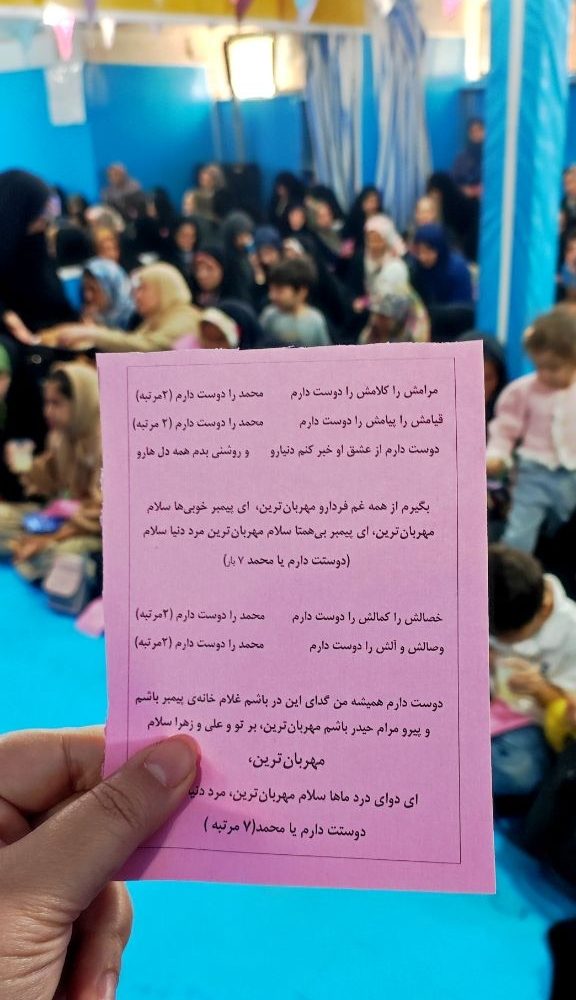 مرامش را کلامش را دوست دارم محمد را دوست دارم (۲مرتبه)
قیامش را پیامش را دوست دارم محمد را دوست دارم (۲ مرتبه)
دوست دارم از عشق او خبر کنم دنیارو و روشنی بدم همه دل هارو
بگیرم از همه غم فردارو مهربان‌ترین، ای پیمبر خوبی‌ها سلام
مهربان‌ترین، ای پیمبر بی‌همتا سلام مهربان‌ترین مرد دنیا سلام
(دوستت دارم یا محمد ۷ بار)
خصالش را کمالش را دوست دارم محمد را دوست دارم (۲مرتبه)
وصالش و آلش را دوست دارم محمد را دوست دارم (۲مرتبه)
دوست دارم همیشه من گدای این در باشم غلام خانه‌ی پیمبر باشم
و پیرو مرام حیدر باشم مهربان‌ترین، بر تو و علی و زهرا سلام
مهربان‌ترین،
ای دوای درد ماها سلام مهربان‌ترین، مرد
دوستت دارم یا محمد(۷ مرتبه )